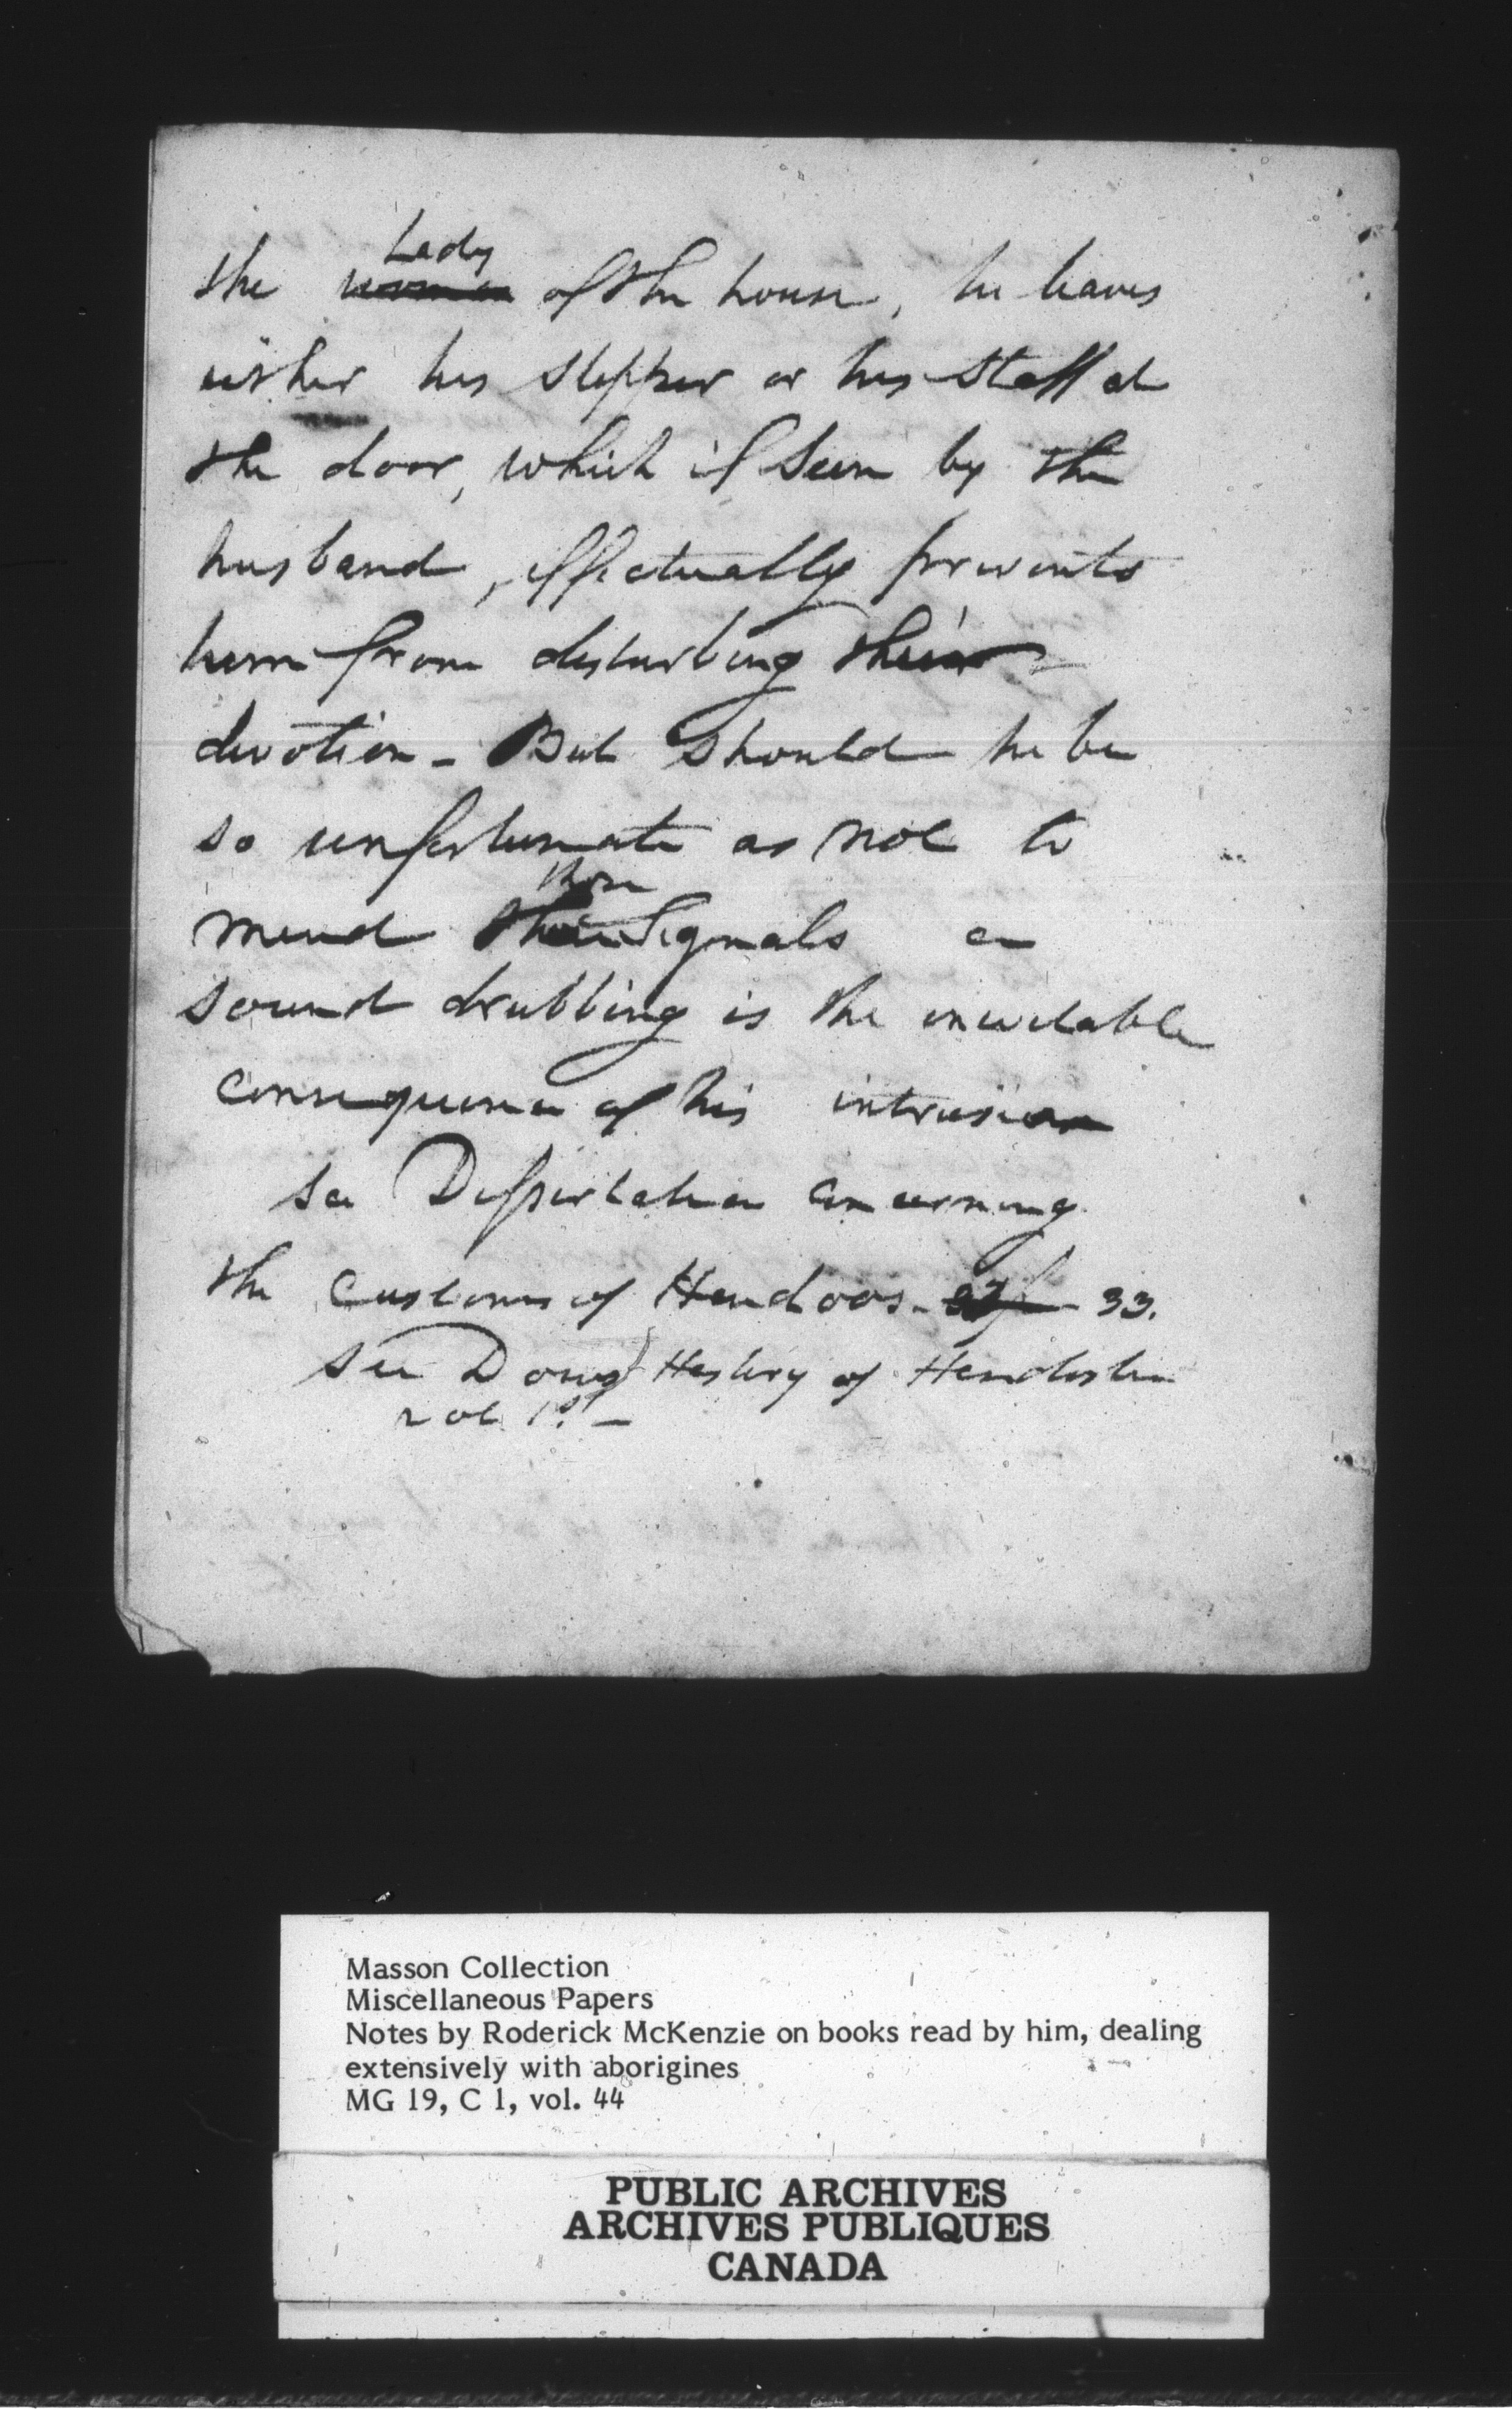 the Lady of the house, he leaves
either his slipper or his staff at
the door, which if seen by the
husband, effectually prevents
him from disturbing their
devotion - But should he be
so unfortunate as not to
mind those signals a
sound drubbing is the inevitable
consequence of his intrusion
see Dissertation concerning
the customs of Hindoos - 33.
see Dows History of Hindostan
vol 1st -
Masson Collection
Miscellaneous Papers
Notes by Roderick McKenzie on books read by him, dealing
extensively with aborigines
MG 19, C 1, vol. 44
PUBLIC ARCHIVES
ARCHIVES PUBLIQUES
CANADA